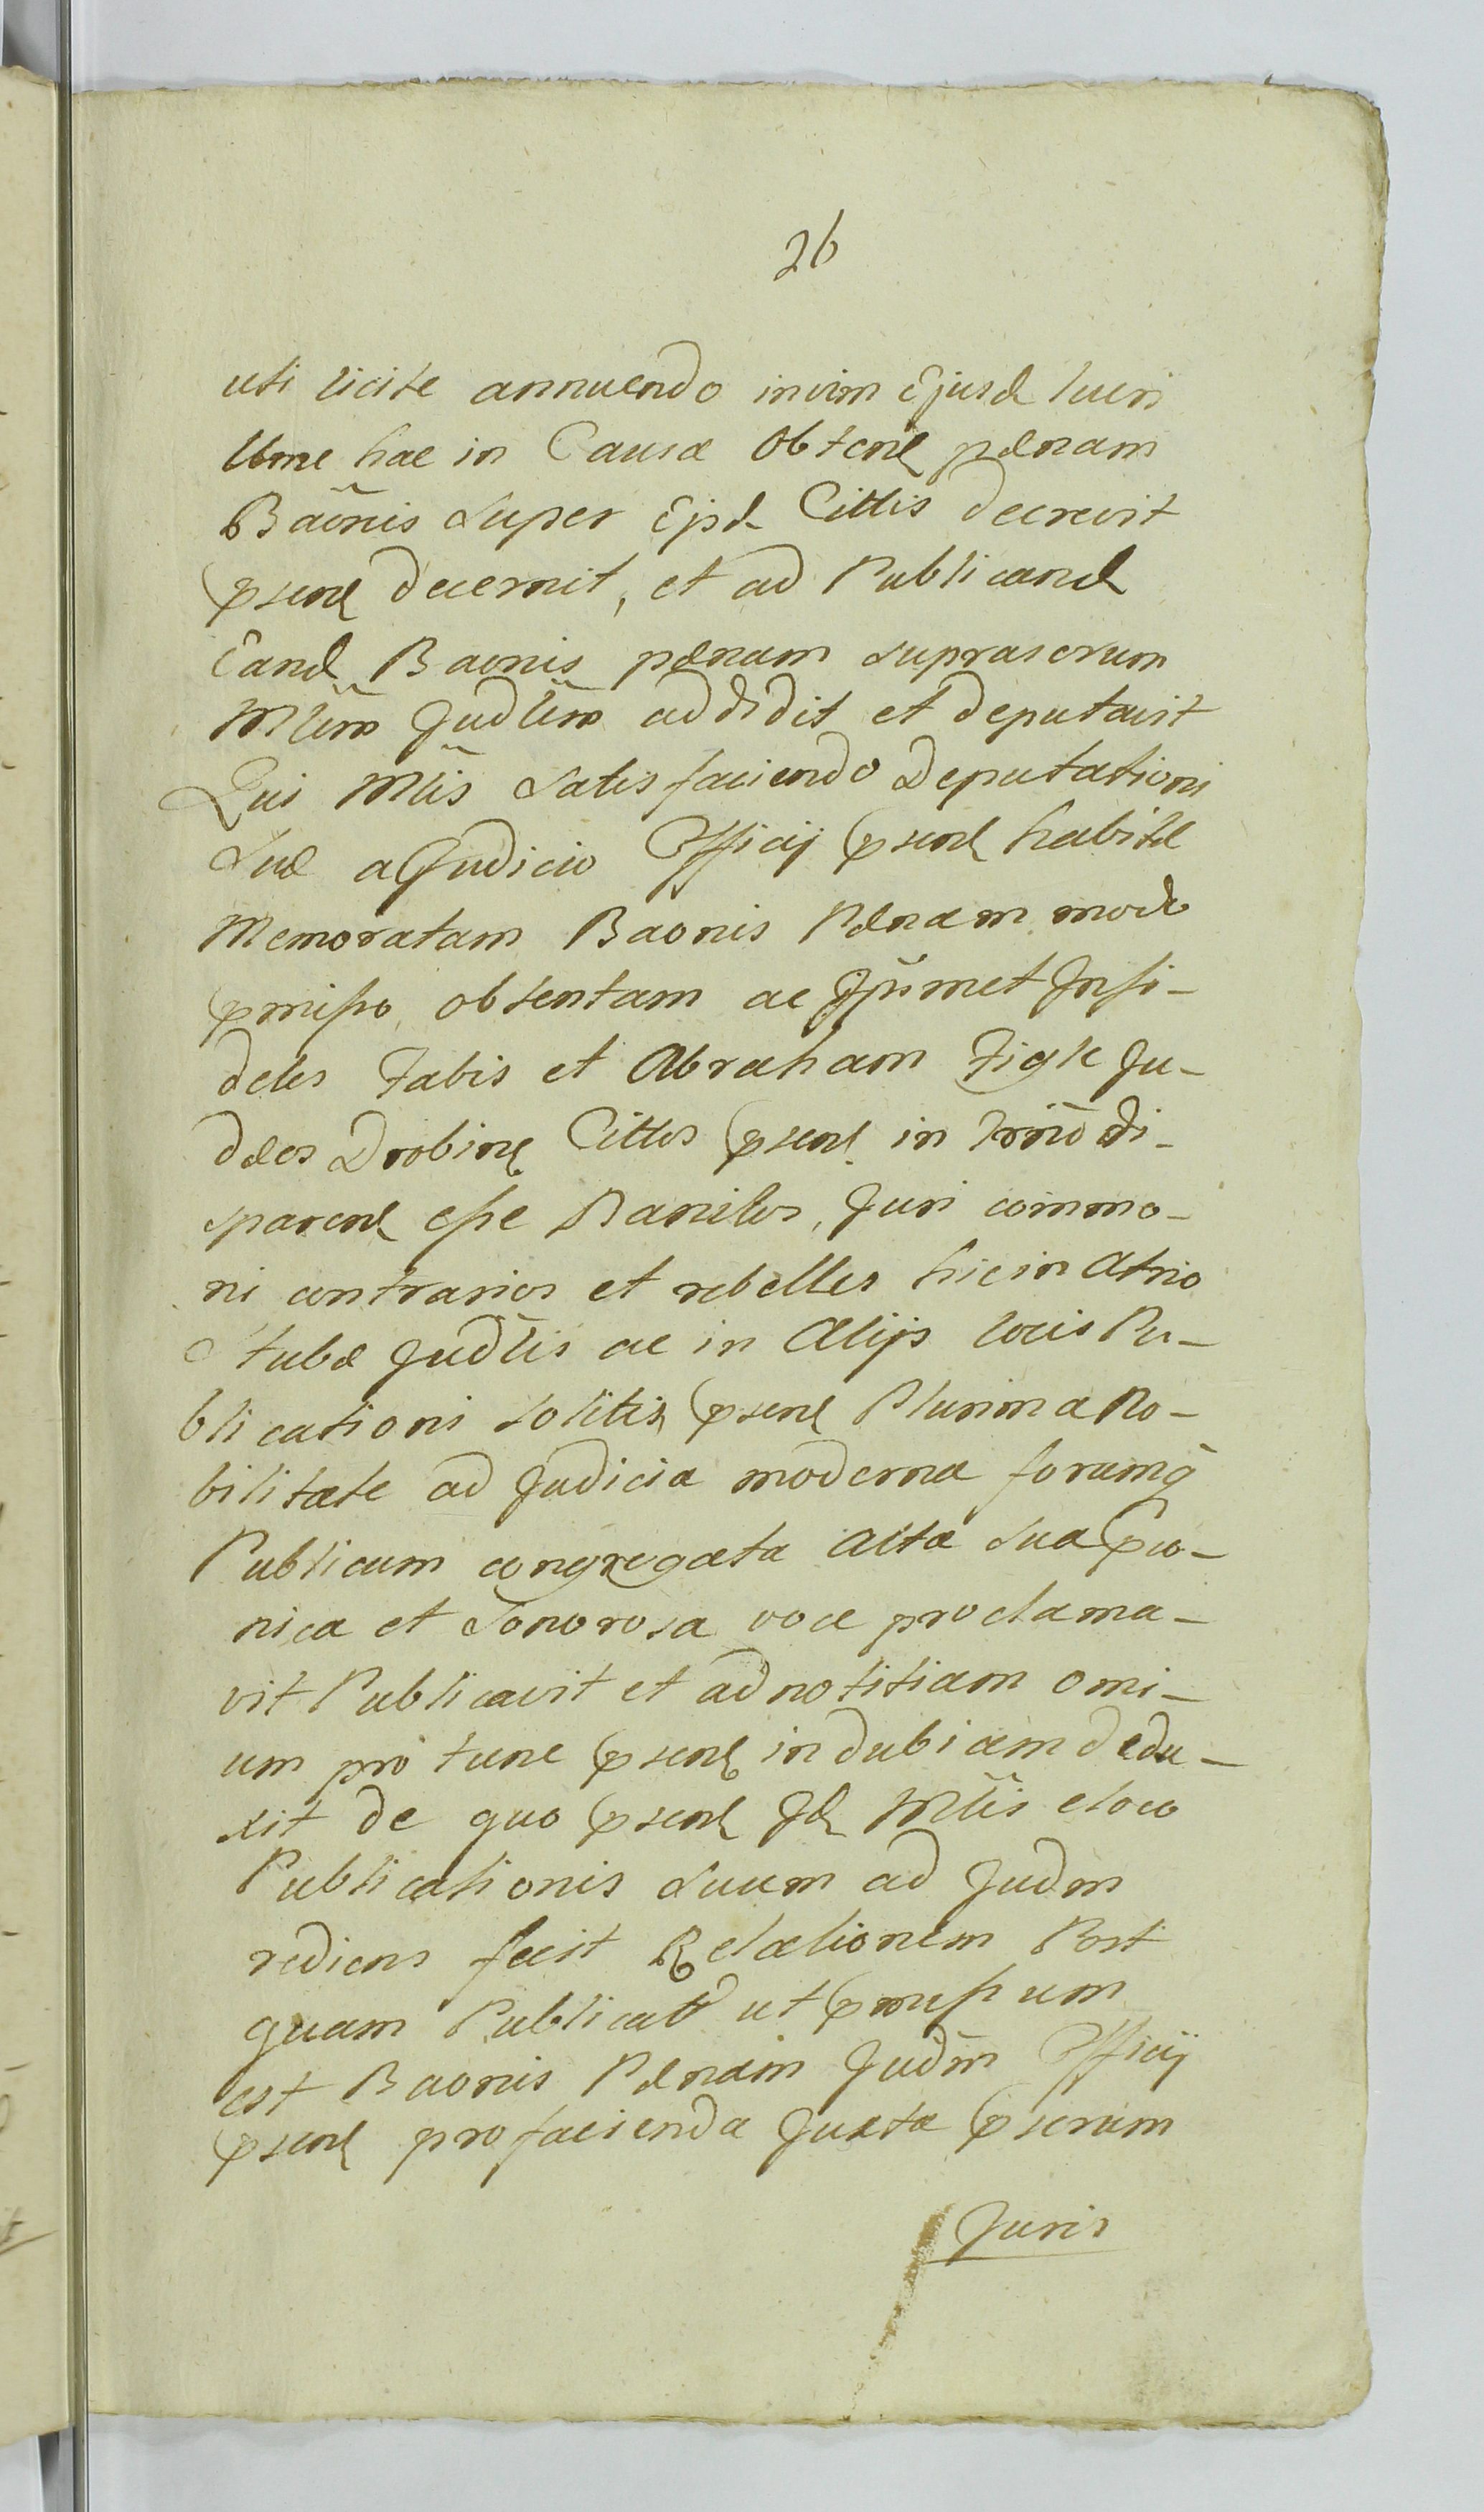 26
uti licite annuendo in vim Ejusd lucri
Ultme hac in Causa Obtent pænam
Baõnis super Eisd Cittis decrevit
pñsent decernit, et ad Publicand
Eand Baonis pænam suprascrium
Mlĩrm Judlĩrm addidit et deputavit
Qui Mlĩs satisfaciendo Deputationi
suæ a Judicio Officij pñsent habitæ
Memoratam Baonis Pænam modo
pmisso obtentam ac Ipsĩmet Infi-
deles Fabis et Abraham Figle Ju-
dæos Drobinen Cittos pñsent in Trĩno di-
sparent esse Banitos, Juri commo-
ni contrarios et rebelles hic in Atrio
Stubæ Judlĩs ac in Alijs locis Pu-
blicationi solitis pñsent Plurima No-
bilitate ad Judicia moderna forumq̃
Publicum congregata alta sua pco-
nica et Sonorosa voce proclama-
vit Publicavit et ad notitiam omi-
um pro tunc pñsent indubiam dedu-
xit de quo pñsent Id Mlĩs e loco
Publicationis suum ad Judm
rediens fecit Relationem Post
quam Publicatõ ut pmissum
est Baonis Pænam Judm̃ Officij
pñsent pro facienda Juxta pscrium
Juris